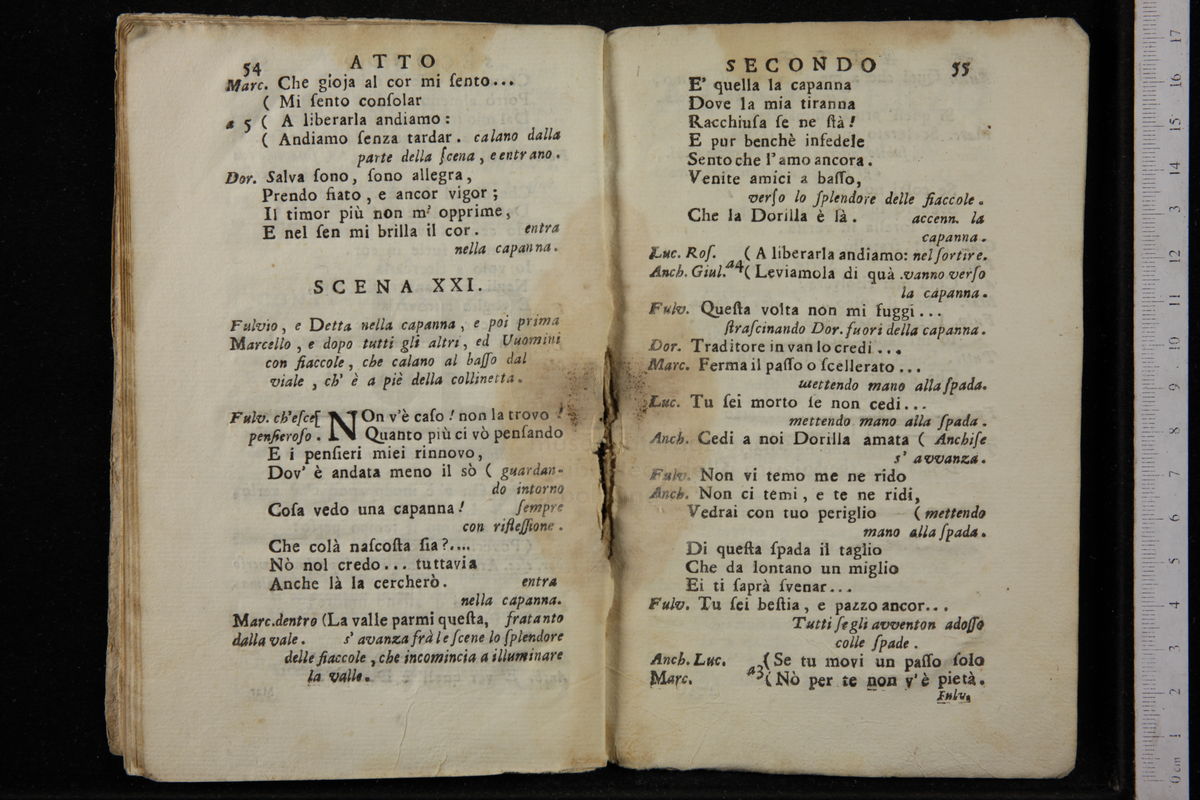 54 ATTO
Marc. Che gioja al cor mi ſento...
( Mi ſento conſolar
a 5 ( A liberarla andiamo:
( Andiamo ſenza tardar. calano dalla
parte della ſcena, e entrano.
Dor. Salva ſono, ſono allegra,
Prendo fiato, e ancor vigor;
Il timor più non m' opprime,
E nel ſen mi brilla il cor. entra
nella capanna.
SCENA XXI.
Fulvio, e Detta nella capanna, e poi prima
Marcello, e dopo tutti gli altri, ed Vuomini
con fiaccole, che calano al baſſo dal
viale, ch' è a piè della collinetta.
Fulv. ch'eſce[ NOn v'è caſo! non la trovo!
penſieroſo. Quanto più ci vò penſando
E i penſieri miei rinnovo,
Dov' è andata meno il sò ( guardan-
do intorno
Coſa vedo una capanna! ſempre
con rifleſſione.
Che colà naſcoſta ſia?....
Nò nol credo... tuttavia
Anche là la cercherò. entra
nella capanna.
Marc.dentro (La valle parmi queſta, fratanto
dalla vale. s' avanza frà le ſcene lo ſplendore
delle fiaccole, che incomincia a illuminare
la valle.
SECONDO 55
E' quella la capanna
Dove la mia tiranna
Racchiuſa ſe ne ſtà!
E pur benchè infedele
Sento che l' amo ancora.
Venite amici a baſſo,
verſo lo ſplendore delle fiaccole.
Che la Dorilla è là. accenn. la
capanna.
Luc. Roſ. ( A liberarla andiamo: nel ſortire.
Anch. Giul. a4 ( Leviamola di quà . vanno verſo
la capanna.
Fulv. Queſta volta non mi fuggi...
ſtraſcinando Dor. fuori della capanna.
Dor. Traditore in van lo credi...
Marc. Ferma il paſſo o ſcellerato...
mettendo mano alla ſpada.
Luc. Tu ſei morto ſe non cedi...
mettendo mano alla ſpada.
Anch. Cedi a noi Dorilla amata ( Anchiſe
s' avvanza.
Fulv. Non vi temo me ne rido
Anch. Non ci temi, e te ne ridi,
Vedrai con tuo periglio ( mettendo
mano alla ſpada.
Di queſta ſpada il taglio
Che da lontano un miglio
Ei ti ſaprà ſvenar...
Fulv. Tu ſei beſtia, e pazzo ancor...
Tutti ſe gli avventon adoſſo
colle ſpade.
Anch. Luc. a3 ( Se tu movi un paſſo ſolo
Marc. ( Nò per te non v'è pietà.
Fulv.